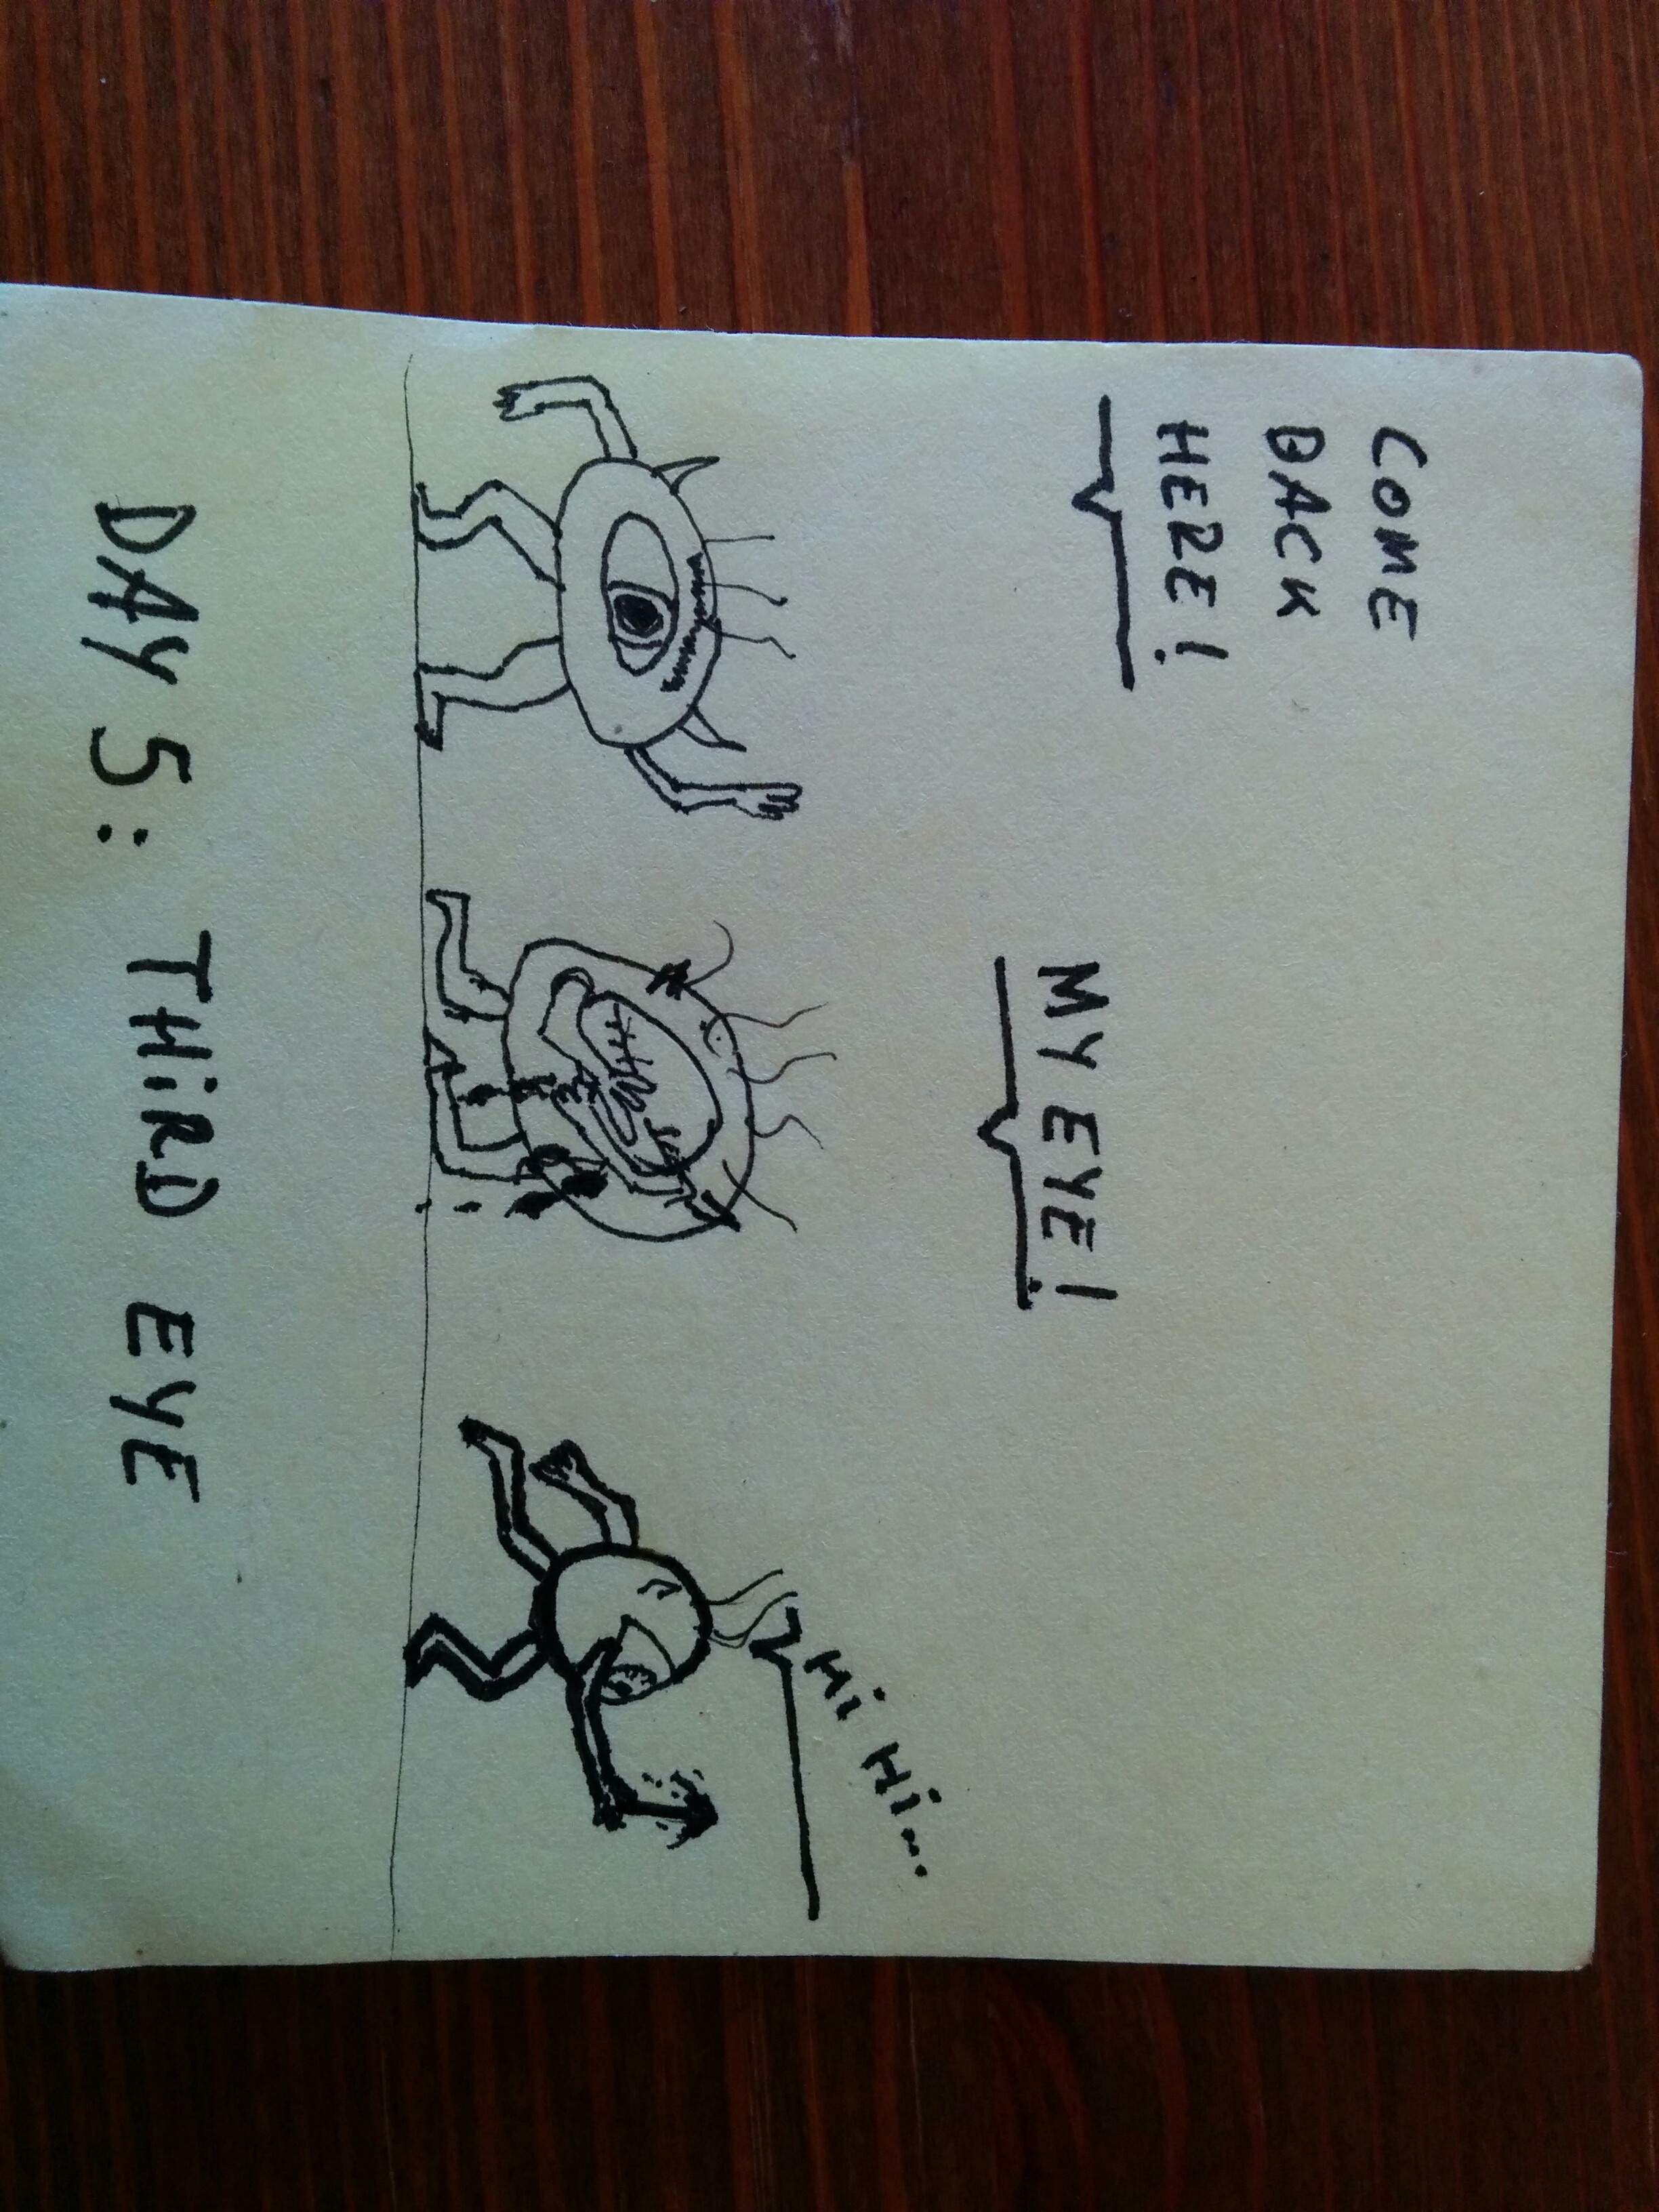 COME
BACK
HERE!
MY EYE!
Hi Hi...
DAY 5: THiRD EYE